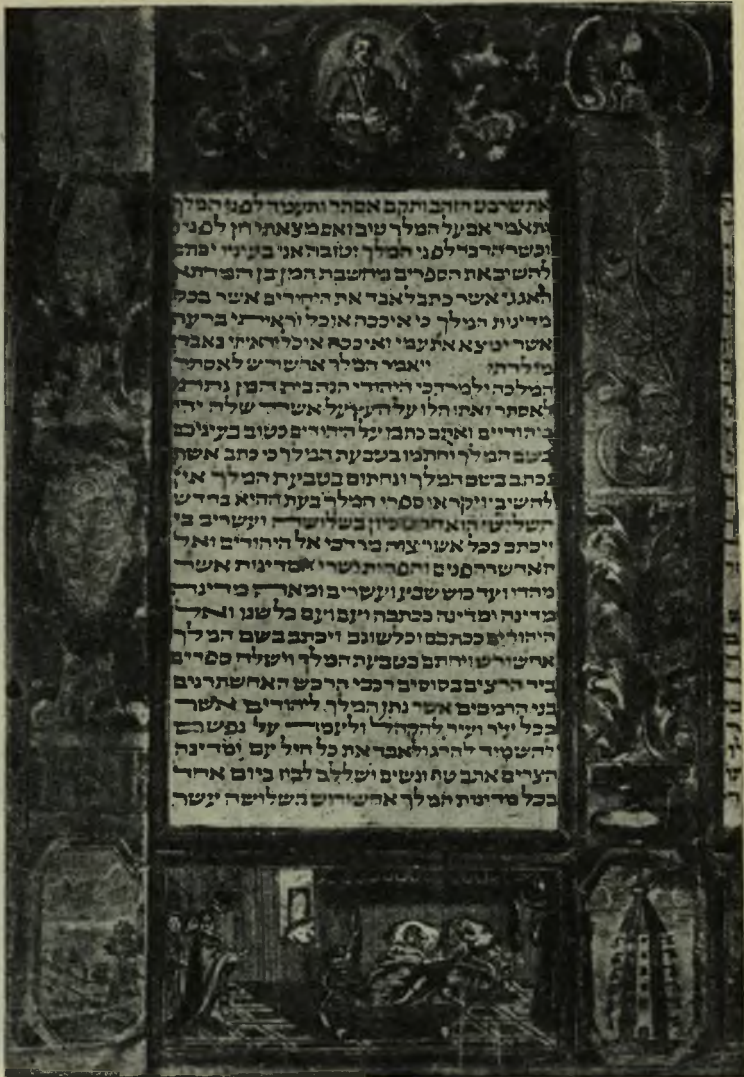 את שרביט הזהב ותקם אסתר ותעמד לפני המלך
ותאמר אם על המלך טוב ואם מצאתי חן לפניו
וכשר הדבר לפני המלך וטובה אני בעיניו יכתב
להשיב את הספרים מחשבת המן בן המדתא
האגגי אשר כתב לאבד את היהודים אשר בכל
מדינות המלך כי איככה אוכל וראיתי ברעה
אשר ימצא את עמי ואיככה אוכל וראיתי באבדן
מולדתי ויאמר המלך אחשורש לאסתר
המלכה ולמרדכי היהודי הנה בית המן נתתי
לאסתר ואתו תלו על העץ על אשר שלח ידו
ביהודיים ואתם כתבו על היהודים כטוב בעיניכם
בשם המלך וחתמו בטבעת המלך כי כתב אשר
נכתב בשם המלך ונחתום בטבעת המלך אין
להשיב ויקראו ספרי המלך בעת ההיא בחדש
השלישי הוא חדש סיון בשלושה ועשרים בו
ויכתב ככל אשר צוה מרדכי אל היהודים ואל
האחשדרפנים והפחות ושרי המדינות אשר
מהדו ועד כוש שבע ועשרים ומאה מדינה
מדינה ומדינה ככתבה ועם ועם כלשנו ואל
היהודים ככתבם וכלשונם ויכתב בשם המלך
אחשורש ויחתם בטבעת המלך וישלח ספרים
ביד הרצים בסוסים רכבי הרכש האחשתרנים
בני הרמכים אשר נתן המלך ליהודים אשר
בכל עיר ועיר להקהל ולעמד על נפשם
להשמיד להרג ולאבד את כל חיל עם ומדינה
הצרים אתם טף ונשים ושללם לבוז ביום אחד
בכל מדינות המלך אחשורוש בשלושה עשר